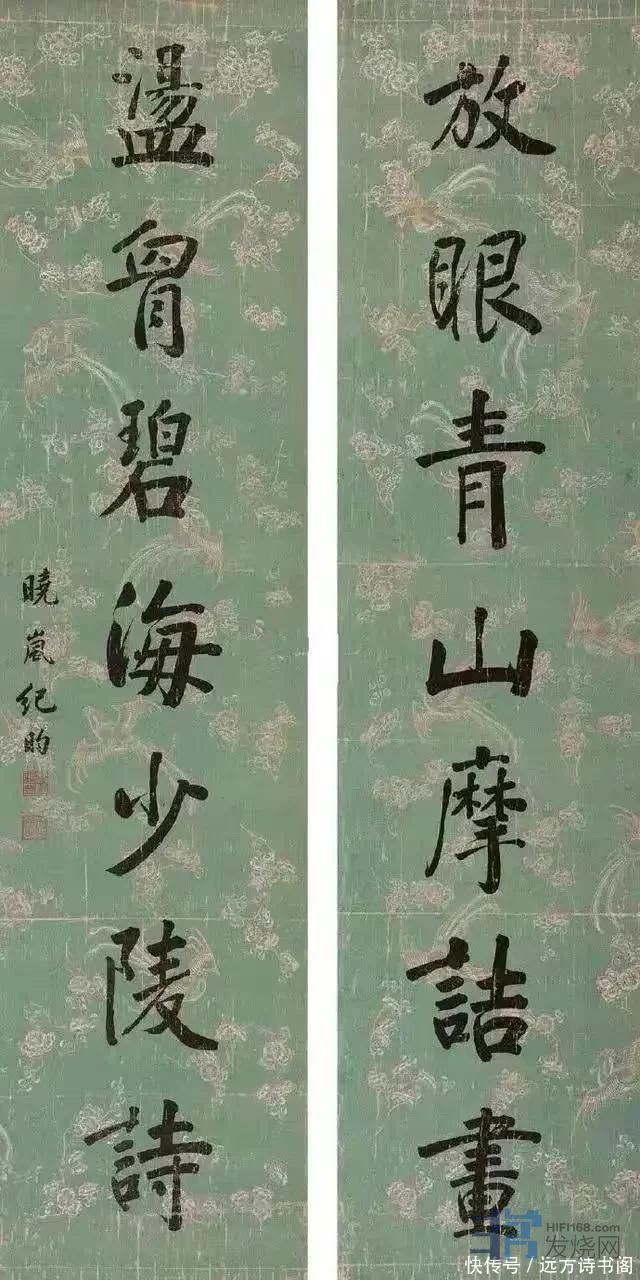 放眼青山摩詰畫
盪胷碧海少陵詩
曉嵐紀昀
HIFI168.com
发烧网
快传号/远方诗书阁